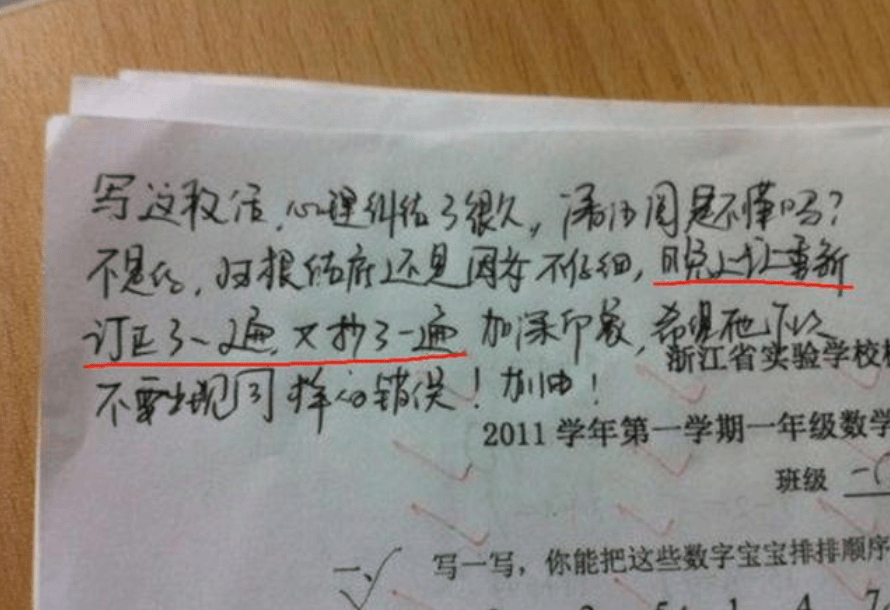 写这段话,心理纠结了很久,潘江周是不懂吗?
不是的,归根结底还是因为不仔细,晚上让重新
订正了一遍,又抄了一遍,加深印象,希望他下次
浙江省实验学校
不要出现同样的错误!加油!
2011 学年第一学期一年级数学
班级 一(
一、 写一写,你能把这些数字宝宝排排顺序
5 1 4 7